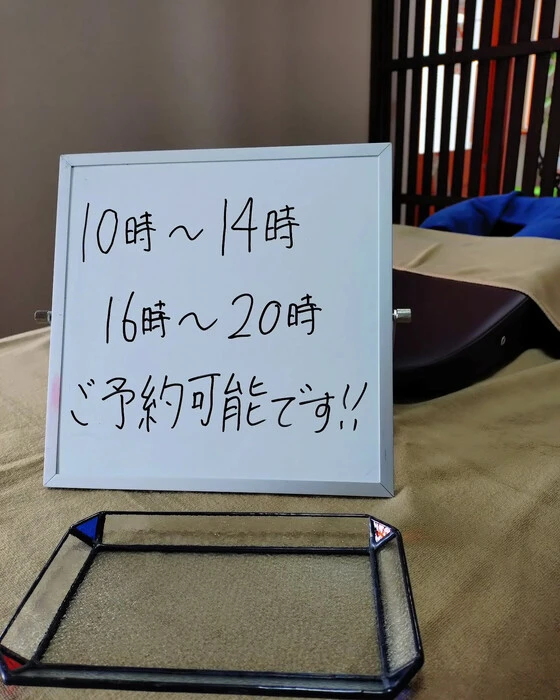 10時～14時
16時～20時
ご予約可能です!!